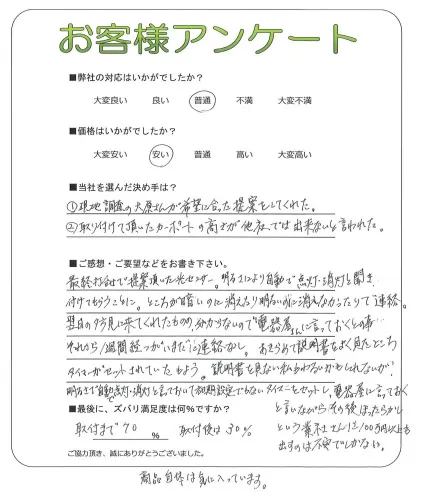 お客様アンケート
■弊社の対応はいかがでしたか？
大変良い 良い 普通 不満 大変不満
■価格はいかがでしたか？
大変安い 安い 普通 高い 大変高い
■当社を選んだ決め手は？
①現地調査の大原さんが希望に合った提案をしてくれた。
②取り付けて頂いたカーポートの高さが他社では出来ないと言われた。
■ご感想・ご要望などをお書き下さい。
最終打合せで提案頂いた光センサー。明るさにより自動で点灯・消灯と聞き
付けてもらうことに。ところが暗いのに消えたり明るいのに消えなかったりで連絡。
翌日の夕方見に来てくれたものの、分からないので電器屋さんに言っておくとの事…
それから1週間経つがいまだに連絡なし。あきらめて説明書をよく見たところ
タイマーがセットされていたもよう。説明書を見ない私もわるいかもしれないが！
明るさで自動点灯・消灯と言っておいて初期設定でもないタイマーをセットし、電器屋に言っておく
と言いながらその後ほったらかし
という業者さんに100万円以上も
出すのは不安でしかない。
■最後に、ズバリ満足度は何％ですか？
取付まで 70 % 取付後は 30%
ご協力頂き、誠にありがとうございました。
商品自体は気に入っています。